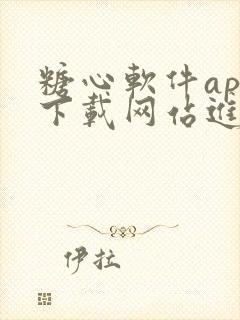 糖心軟件ap
下載网佔進
伊拉